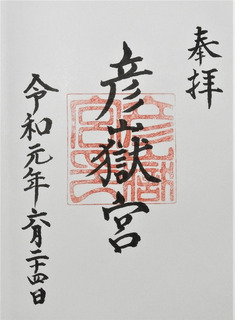 奉拝
彦嶽宮
令和元年六月二十四日